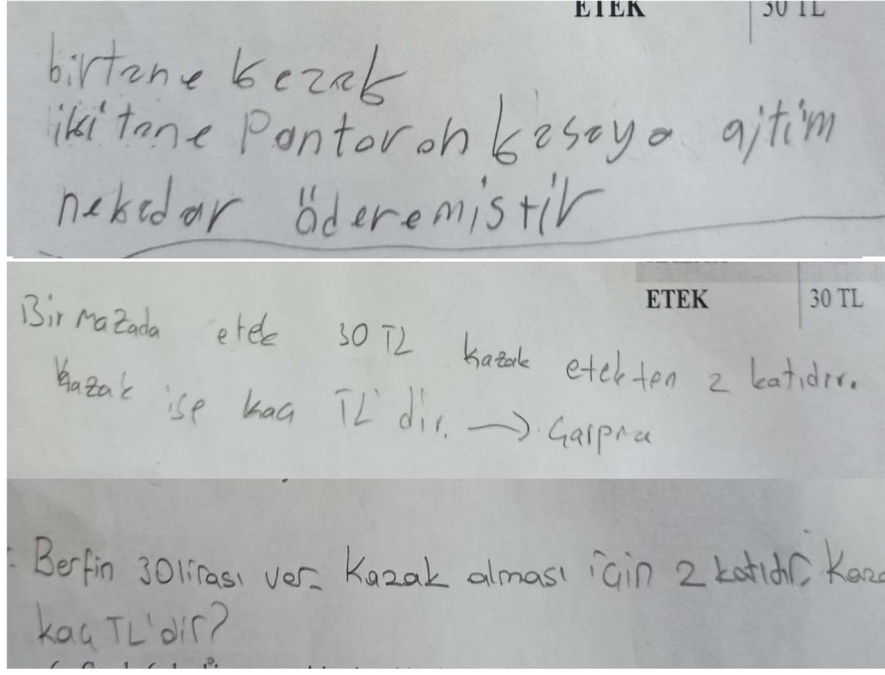 ETEK 30 TL
birtane kazak
iki tane Pantoroh kasaya ajtim
nekadar öderemistir
ETEK 30 TL
Bir mazada etek 30 TL kazak etekten 2 katıdır.
Kazak ise kaç TL'dir. → Çarpma
Berfin 30 lirası var. Kazak alması için 2 katıdır. Kaza
kaç TL'dir?